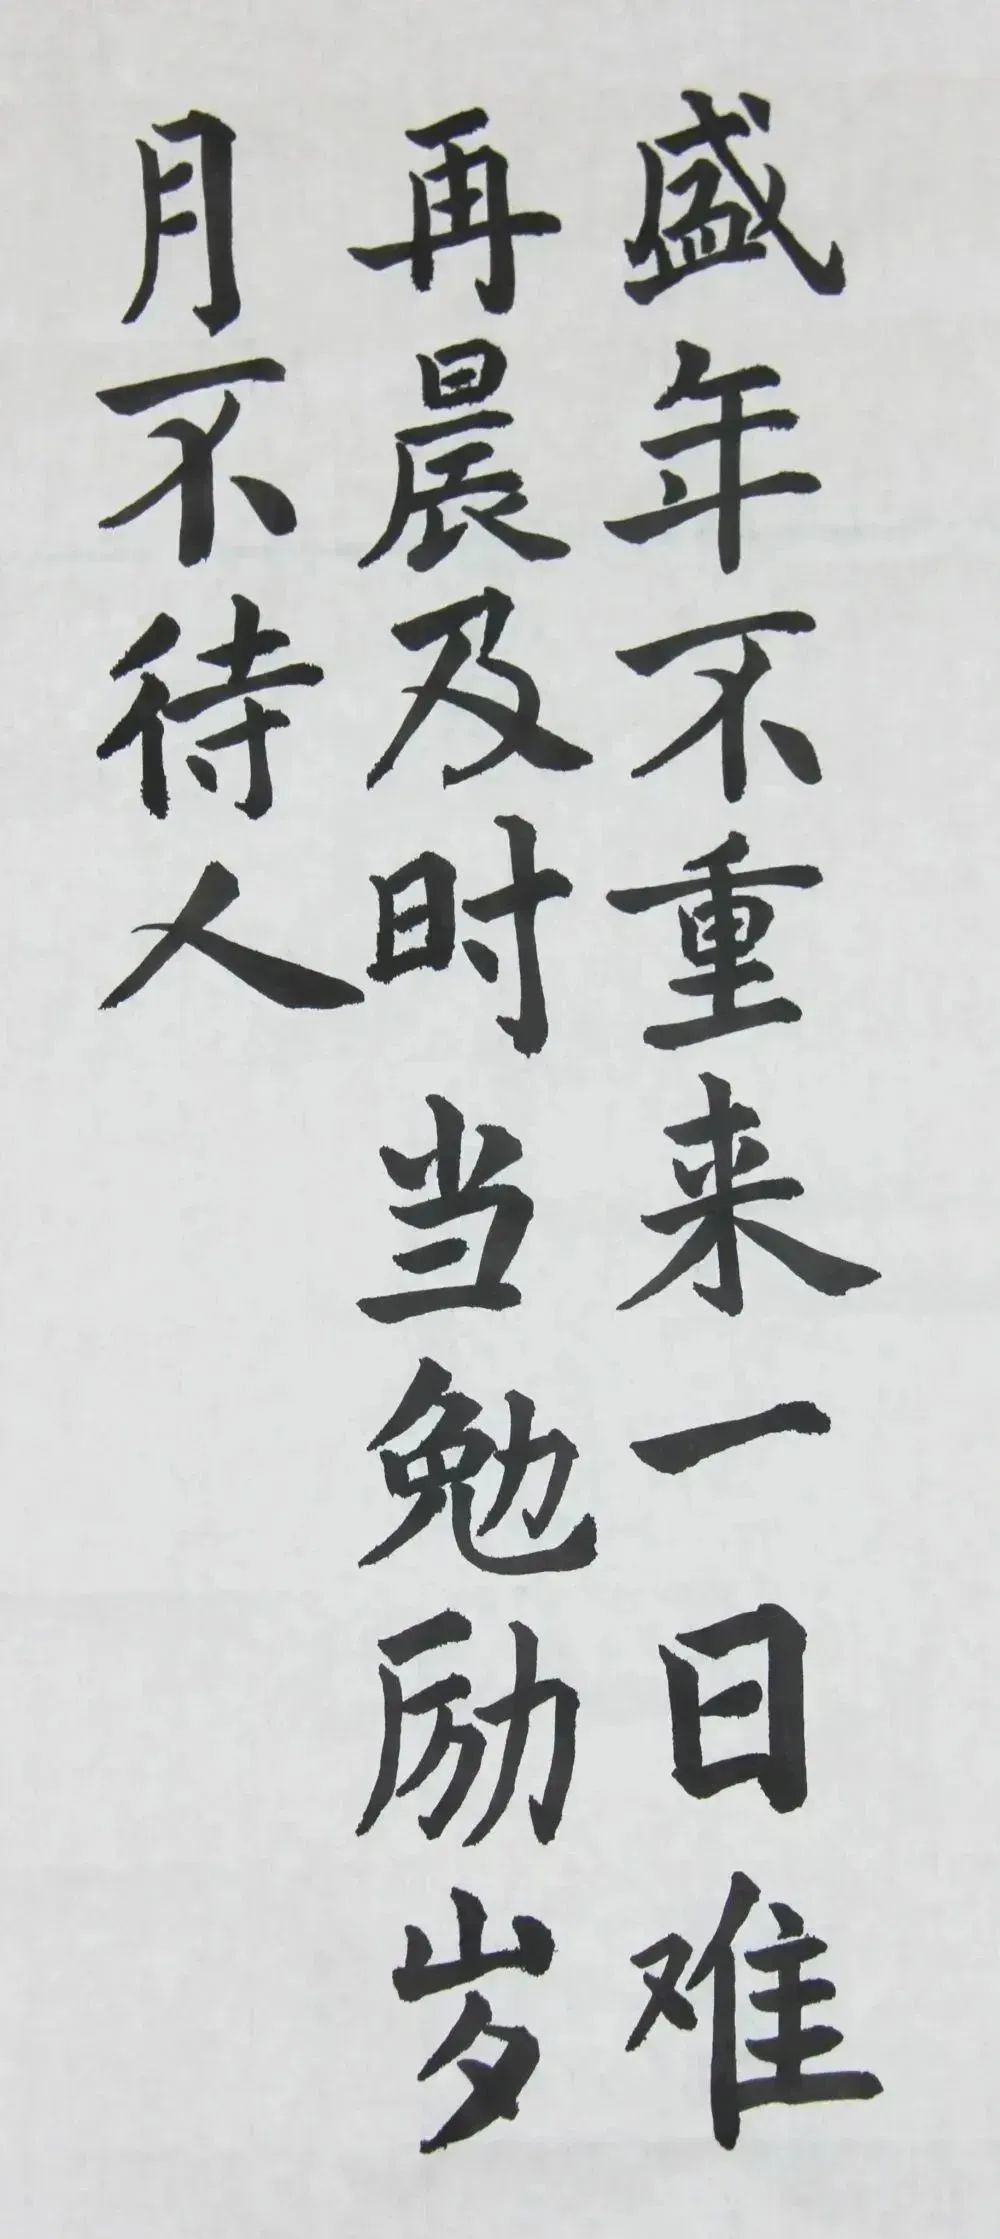 盛年不重来一日难
再晨及时当勉励岁
月不待人